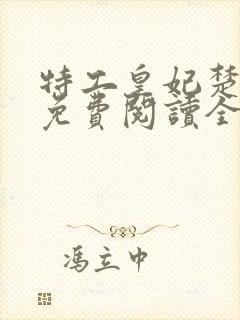 特工皇妃楚
免費閱讀全
馮立中